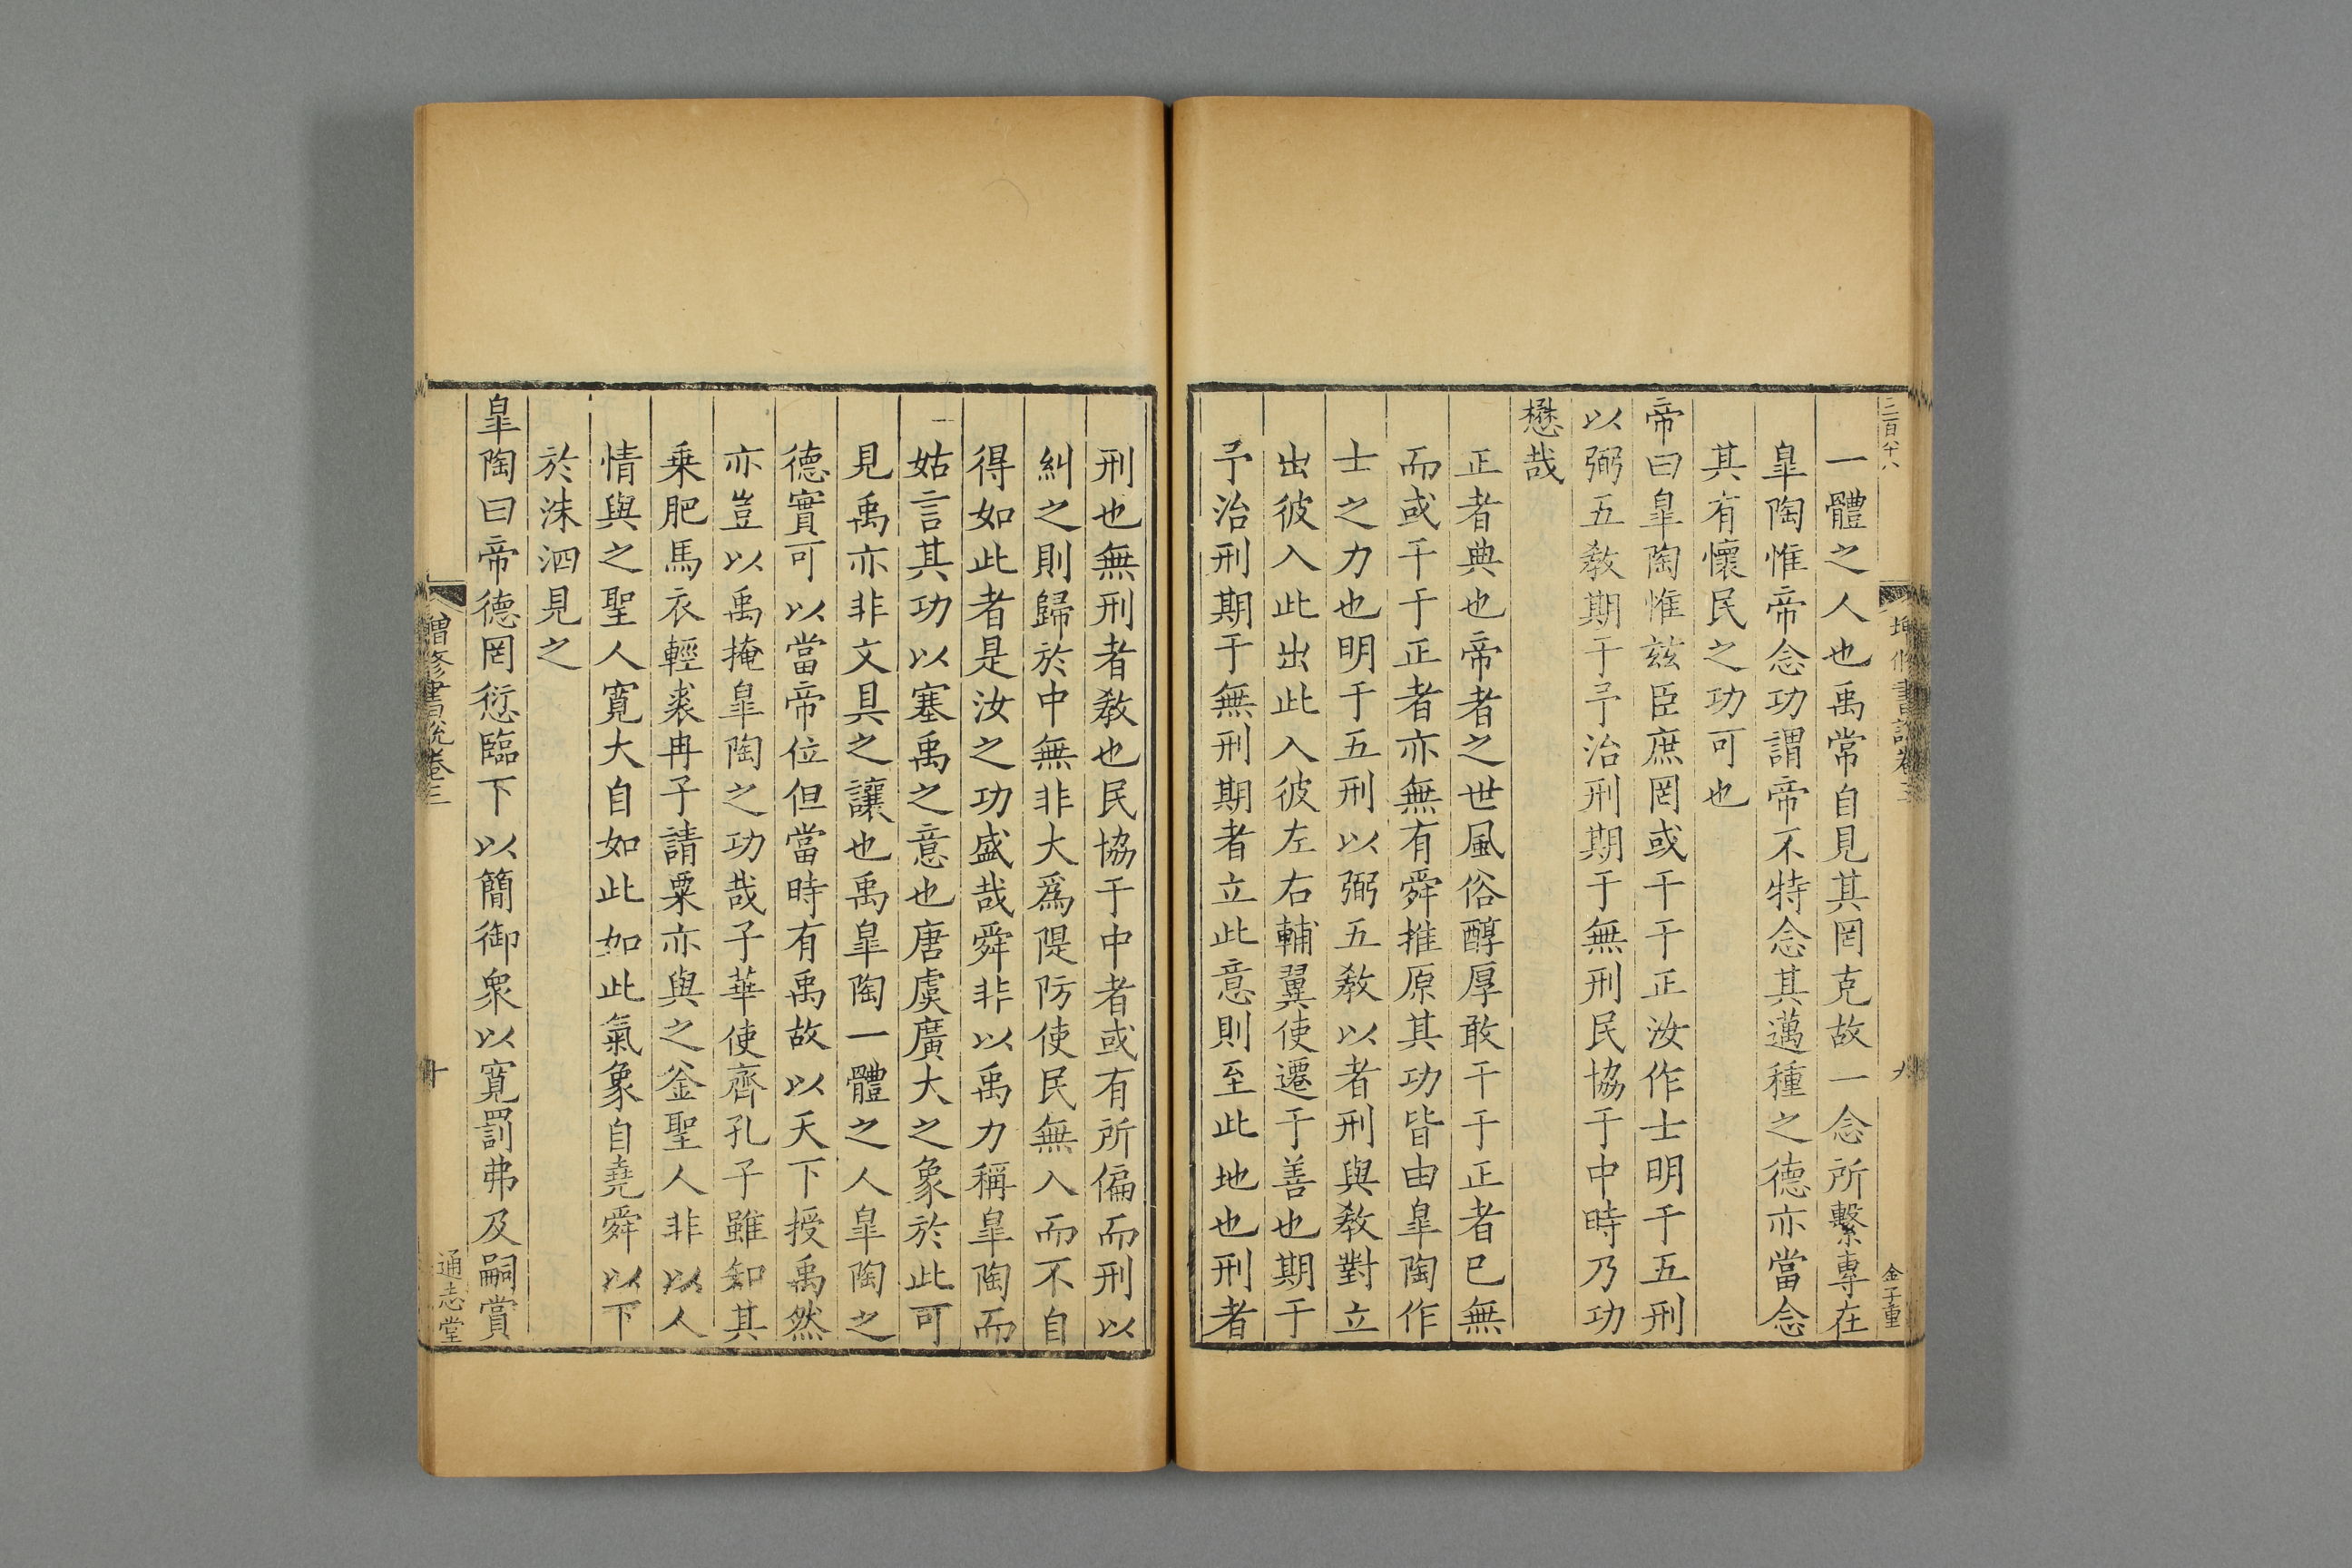 三百八十八
一體之人也禹常自見其罔克故一念所繫專在
皐陶惟帝念功謂帝不特念其邁種之德亦當念
其有懷民之功可也
帝曰皐陶惟兹臣庶罔或干于正汝作士明于五刑
以弼五敎期于予治刑期于無刑民協于中時乃功
懋哉
正者典也帝者之世風俗醇厚敢干于正者已無
而或干于正者亦無有舜推原其功皆由皐陶作
士之力也明于五刑以弼五敎以者刑與敎對立
出彼入此出此入彼左右輔翼使遷于善也期于
予治刑期于無刑期者立此意則至此地也刑者
增修書說卷三
九
金子重
刑也無刑者敎也民協于中者或有所偏而刑以
糾之則歸於中無非大爲隄防使民無入而不自
得如此者是汝之功盛哉舜非以禹力稱皐陶而
姑言其功以塞禹之意也唐虞廣大之象於此可
見禹亦非文具之讓也禹皐陶一體之人皐陶之
德實可以當帝位但當時有禹故以天下授禹然
亦豈以禹掩皐陶之功哉子華使齊孔子雖知其
乗肥馬衣輕裘冉子請粟亦與之釜聖人非以人
情與之聖人寛大自如此如此氣象自堯舜以下
於洙泗見之
皐陶曰帝德罔愆臨下以簡御衆以寛罰弗及嗣賞
增修書說卷三
十
通志堂